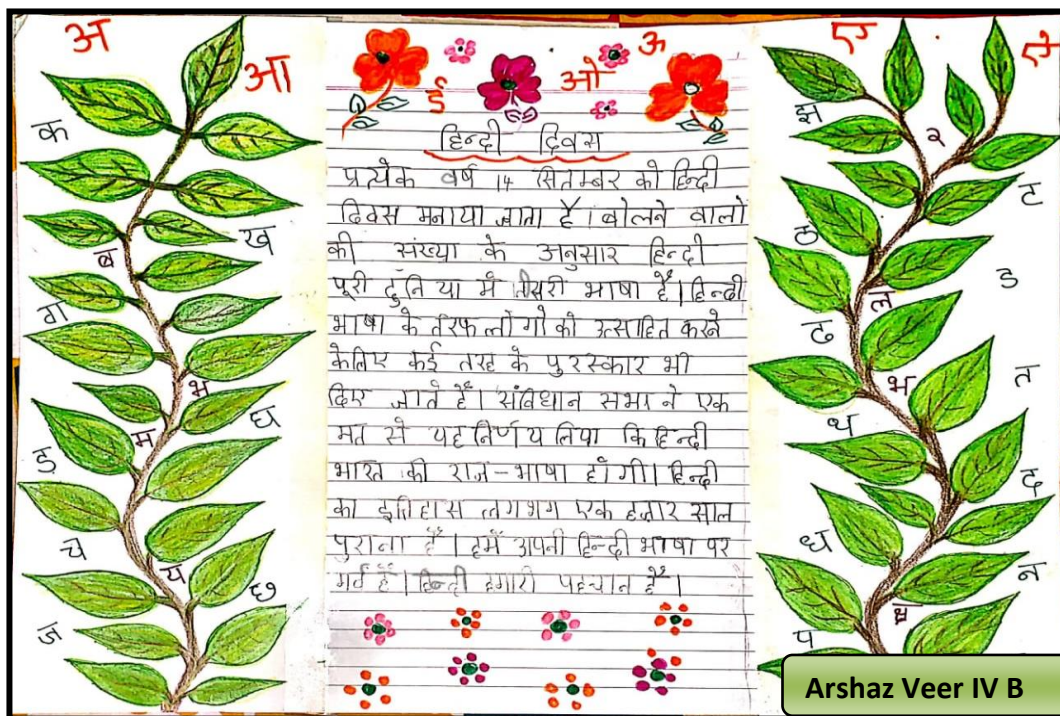 अ
आ
क
ख
ब
ग
भ
घ
म
ङ
च
य
छ
ज
ई
ओ
ऊ
हिन्दी दिवस
प्रत्येक वर्ष 14 सितम्बर को हिन्दी
दिवस मनाया जाता है। बोलने वालो
की संख्या के अनुसार हिन्दी
पूरी दुनिया में तीसरी भाषा है। हिन्दी
भाषा के तरफ लोगो को उत्साहित करने
केलिए कई तरह के पुरस्कार भी
दिए जाते हैं। संविधान सभा ने एक
मत से यह निर्णय लिया कि हिन्दी
भारत की राज-भाषा होंगी। हिन्दी
का इतिहास लगभग एक हजार साल
पुराना है। हमें अपनी हिन्दी भाषा पर
गर्व है। हिन्दी हमारी पहचान है।
ए
ऐ
झ
र
ट
ठ
ड
ल
ढ
त
भ
थ
द
ध
न
प
Arshaz Veer IV B